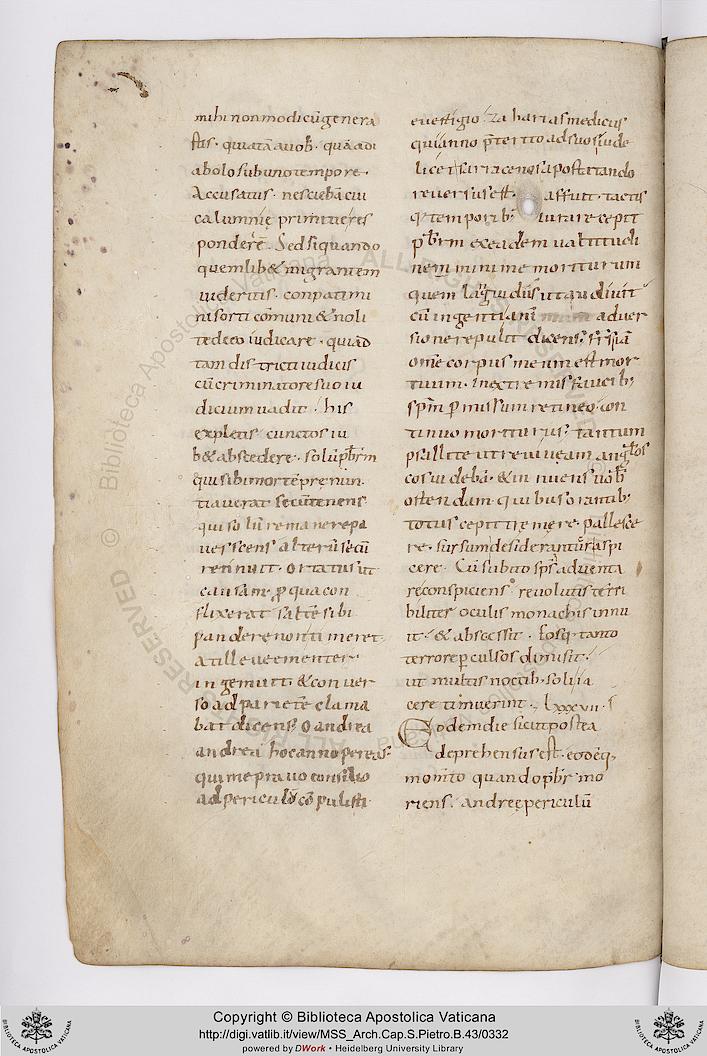 mihi non modicũ genera
stis. quia tã a uob̃. quã a di
abolo sub uno tempore.
Accusatus. nesciebã cui
calumnię primitus res
ponderẽ. Sed si quando
quemlib& migrantem
uideritis. conpatimi
ni sorti cõmuni & noli
te d̃ eo iudicare. quia ad
tam districti iudicis
cũ criminatore suo iu
dicium uadit. his
expletis cunctos iu
b& abscedere. solũ p̃br̃m
qui sibi mortẽ prenun
tiauerat secũ tenens
qui solũ remanere pa
uescens alterũ secũ
retinuit. ortatus ut
causam. pro qua con
flixerat saltẽ sibi
pandere non timeret
at ille uementer
ingemuit. & conuer
so ad parietẽ clama
bat dicens. O andrea
andrea hoc anno pereas
qui me prauo consilio
ad periculũ cõpulisti
euestigio zaharias medicus
qui anno p̃terito ad suos iude
lic& sarracenos apostatando
reuersus est. affuit. tactis
q: temporib: iurare cepit
p̃br̃m ex eadem ualitudi
nem minime moriturum
quem
cũ ingenti animi aduer
sione repulit dicens.
om̃e corpus meum est mor
tuum. In extremis faucib:
sp̃m permissum retineo. con
tinuo moriturus. tantum
psillite ut reuiuęam angłos
cos uidebã. & innuens uob̃
ostendam. quibus orantib:
totus cepit tremere. pallesce
re. sursum desiderantur aspi
cere. Cũ subito sps̃ aduenta
re conspiciens reuolutis terri
biliter oculis monachis innu
it. & abscessit. Eosq: tanto
terrore perculsos dimisit.
ut multis noctib: soli ia
cere timuerint. lxxxvii.
Eodem die sicut postea
deprehensus est. eodeq:
momẽto quando p̃br̃ mo
riens. andreę periculũ
Copyright © Biblioteca Apostolica Vaticana
http://digi.vatlib.it/view/MSS_Arch.Cap.S.Pietro.B.43/0332
powered by DWork • Heidelberg University Library